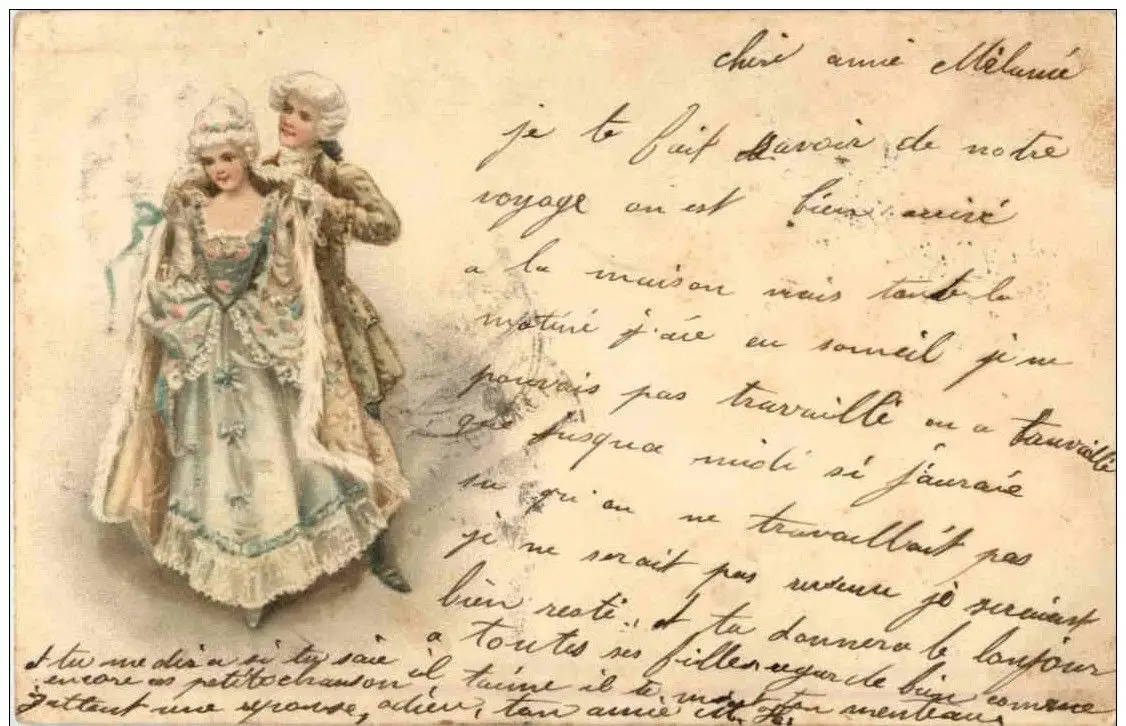 chère amie Mélanie
je te fait savoir de notre
voyage on est bien arrivé
a la maison mais toute la
matiné j'aie eu someil je ne
pouvais pas travaillé on a travaillé
que jusqua midi si j'auraie
su qu'on ne travaillait pas
je ne serait pas revenu je seraiest
bien resté, et tu donnera le bonjour
a toutes ses filles regarde bien comme
et tu me dira si tu saie
encore ces petite chanson il t'aime il te menteau
J'attent une reponse, adieu, ton amie M.